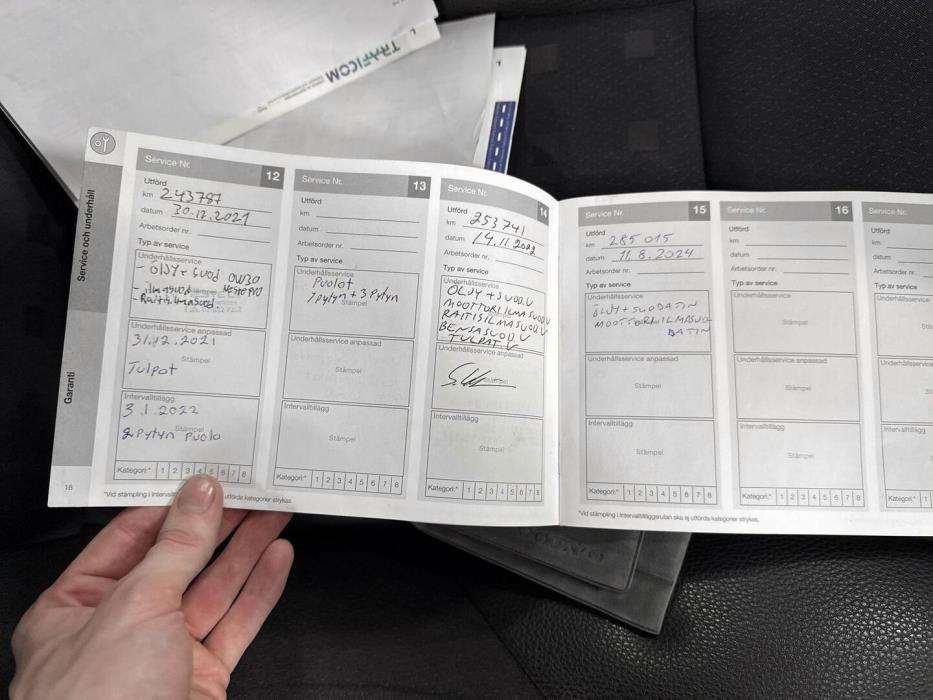 TRAFICOM
Service och underhåll
Garanti
18
Service Nr. 12
Utförd
km 243787
datum 30.12.2021
Arbetsorder nr.
Typ av service
Underhållsservice
- ÖLJY + SUOD 0W30
- ilmasuod
- Raitisilmasuod
Underhållsservice anpassad
31.12.2021
Stämpel
Tulpat
Intervalltillägg
3.1.2022
Stämpel
2 pytyn puola
Kategori:* 1 2 3 4 5 6 7 8
Service Nr. 13
Utförd
km
datum
Arbetsorder nr.
Typ av service
Underhållsservice
Puolat
Stämpel
1 pytyn + 3 pytyn
Underhållsservice anpassad
Stämpel
Intervalltillägg
Stämpel
Kategori:* 1 2 3 4 5 6 7 8
Service Nr. 14
Utförd
km 253741
datum 14.11.2022
Arbetsorder nr.
Typ av service
Underhållsservice
ÖLJY + SUOD.V
MOOTTORI ILMASUOD.V
RAITISILMASUOD.V
BENSASUOD.V
TULPAT.V
Underhållsservice anpassad
Stämpel
Intervalltillägg
Stämpel
Kategori:* 1 2 3 4 5 6 7 8
*Vid stämpling i Intervall utförda kategorier strykas.
Service Nr. 15
Utförd
km 285 015
datum 11.8.2024
Arbetsorder nr.
Typ av service
Underhållsservice
ÖLJY + SUODATIN
MOOTTORI ILMASUO
DATIN
Underhållsservice anpassad
Stämpel
Intervalltillägg
Stämpel
Kategori:* 1 2 3 4 5 6 7 8
Service Nr. 16
Utförd
km
datum
Arbetsorder nr.
Typ av service
Underhållsservice
Stämpel
Underhållsservice anpassad
Stämpel
Intervalltillägg
Stämpel
Kategori:* 1 2 3 4 5 6 7 8
*Vid stämpling i Intervalltilläggsrutan ska ej utförda kategorier strykas.
Service Nr.
Utförd
km
datum
Arbetsorder
Typ av service
Underhållsser
Underhållss
Intervalltill
Kategori:* 1